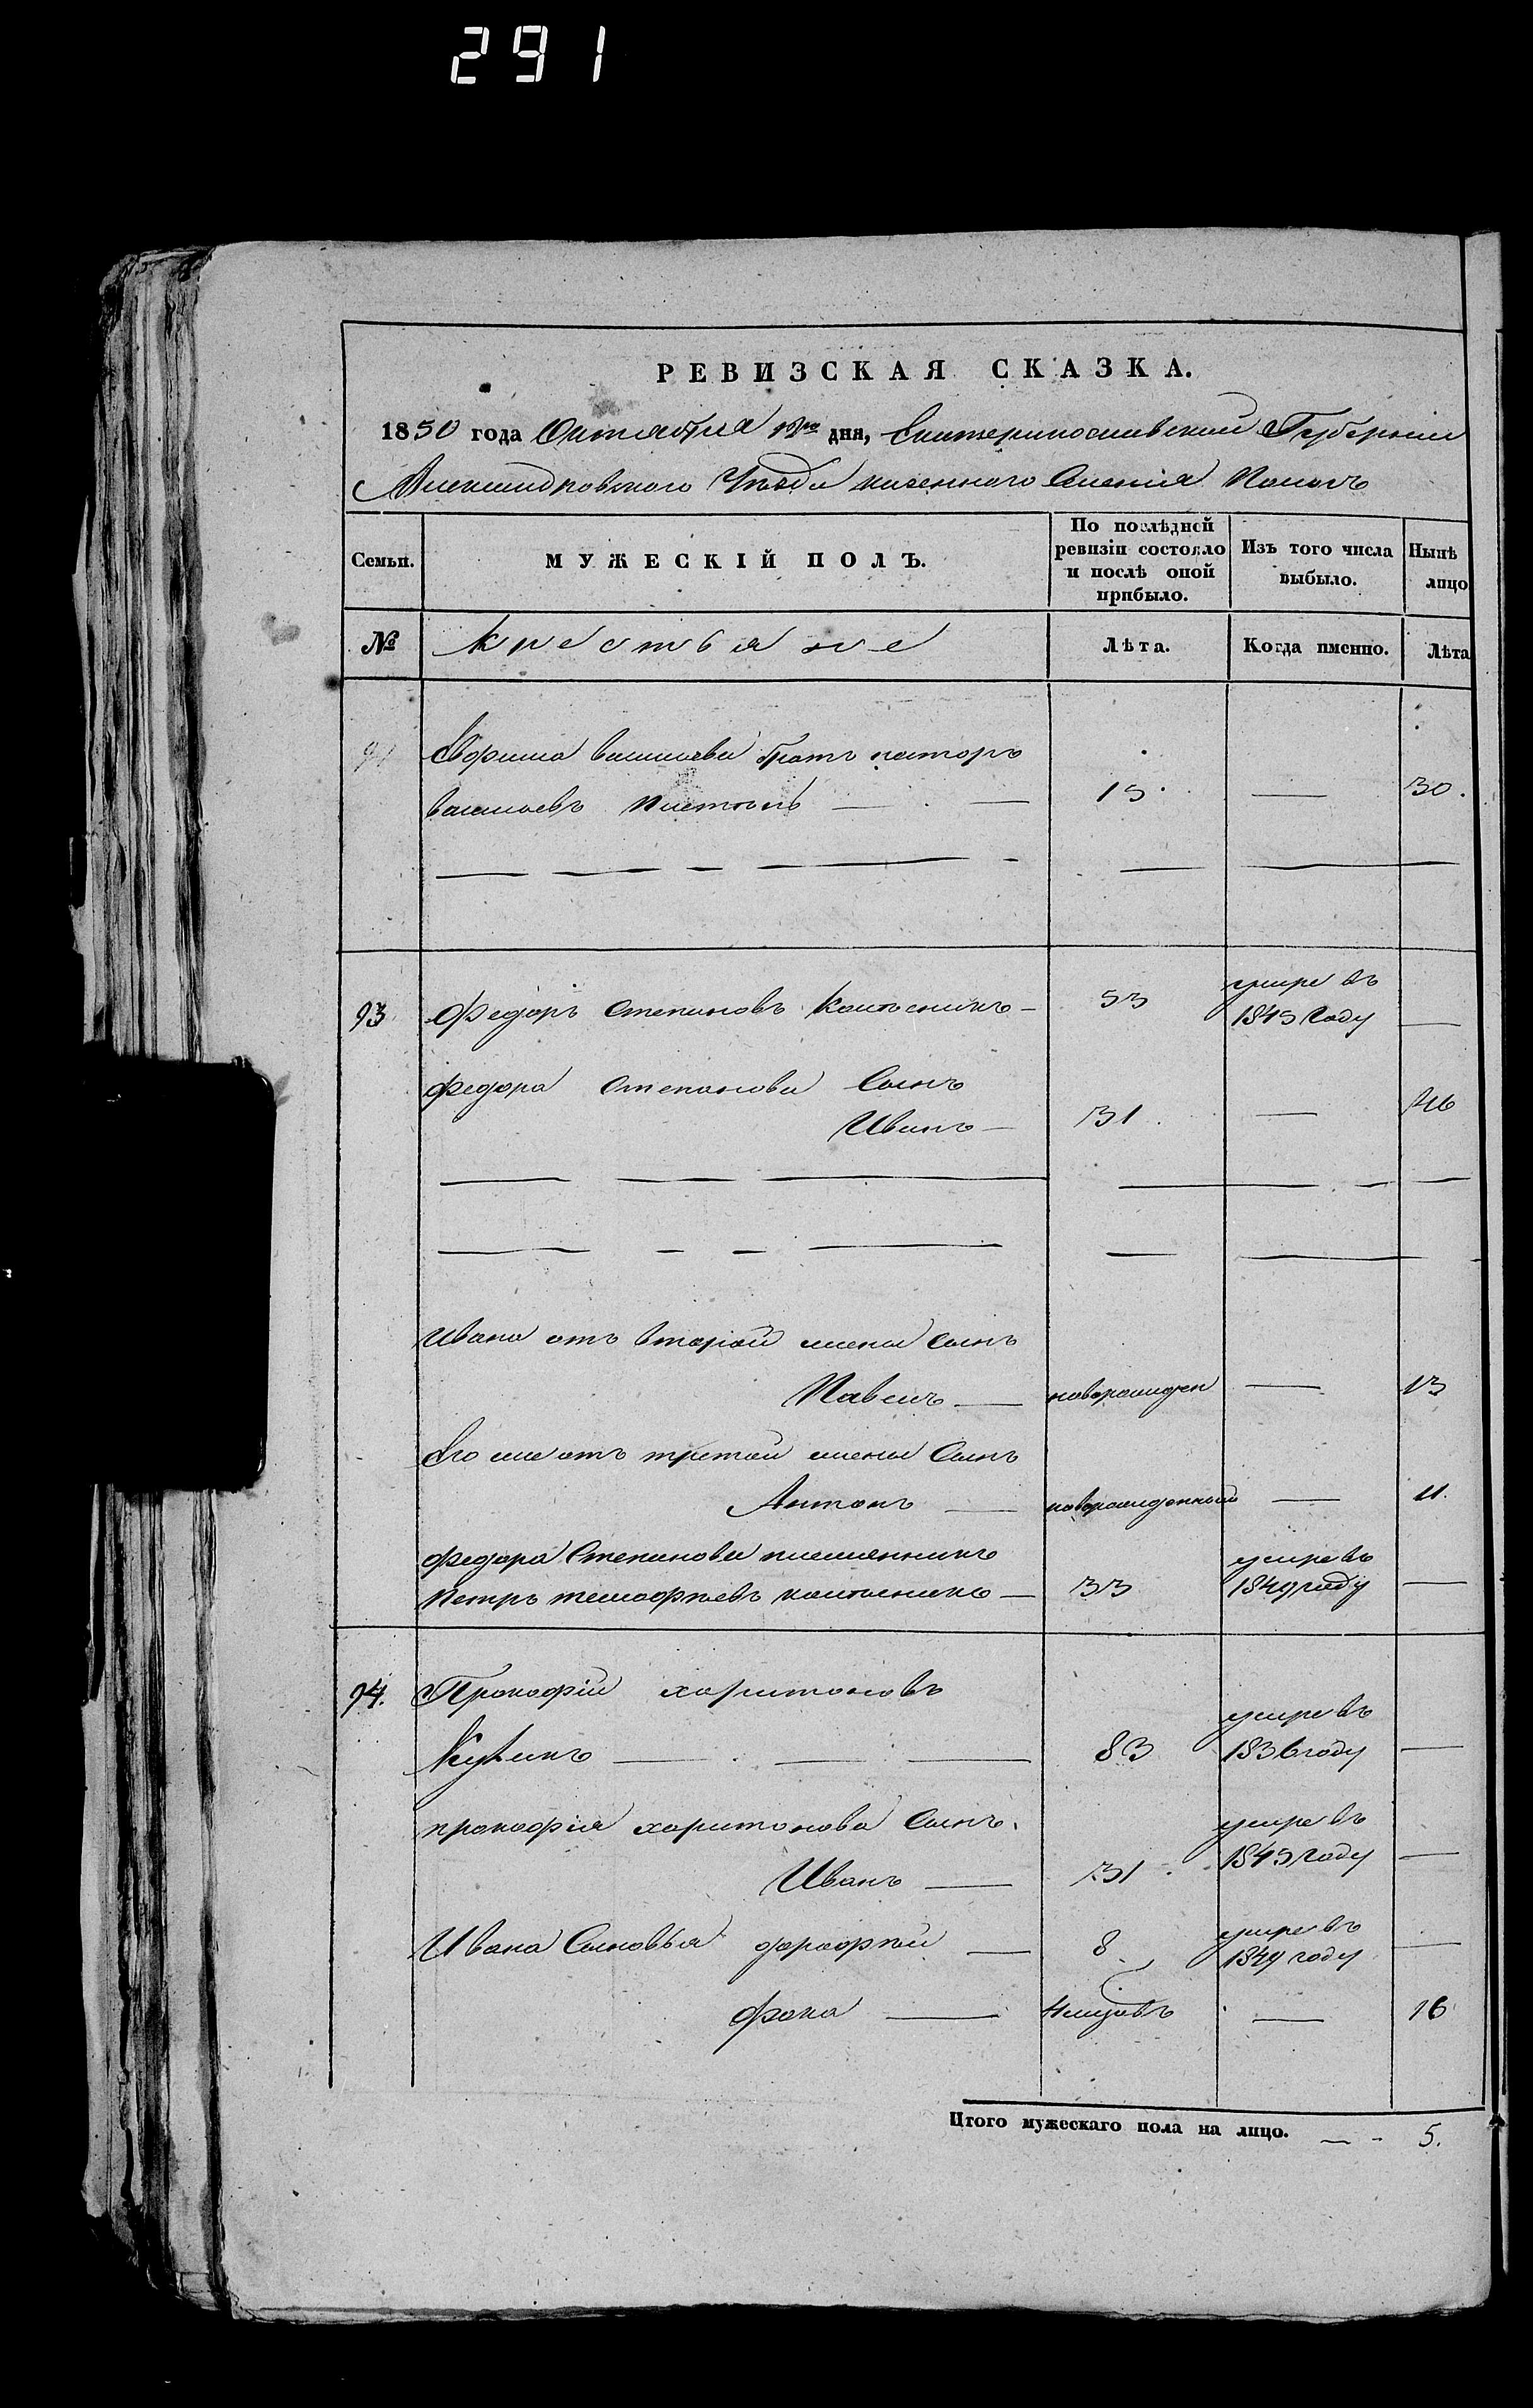 291
РЕВИЗСКАЯ СКАЗКА.
1850 года Октября дня, Екатеринославской Губернии
Александровского Уезда казенного Селения
Семьи. МУЖЕСКІЙ ПОЛЪ. По послѣдней ревизіи состояло и послѣ оной прибыло. Изъ того числа выбыло. Нынѣ лицо
№ крестьяне Лѣта. Когда именно. Лѣта
Ефима васильева братъ нестеръ
васильевъ 15 — 30.
93 Федоръ Степановъ Колесникъ — 53 умре въ 1845 Году —
федора Степанова Сынъ
Иванъ — 31 — 46
Ивана отъ второй жены Сынъ
Павелъ — новорожден — 13
Его же отъ третей жены Сынъ
Антонъ — новорожденный — 11.
федора Степанова племенникъ
Петръ тимофѣевъ колесникъ — 33 умре въ 1849 году —
94. Прокофій харитоновъ
— 83 умре въ 1836 году —
прокофія харитонова Сынъ.
Иванъ — 31 умре въ 1845 Году —
Ивана Сыновья дорофѣй — 8 умре въ 1849 году —
фока — — 16
Итого мужескаго пола на лицо. — - 5.